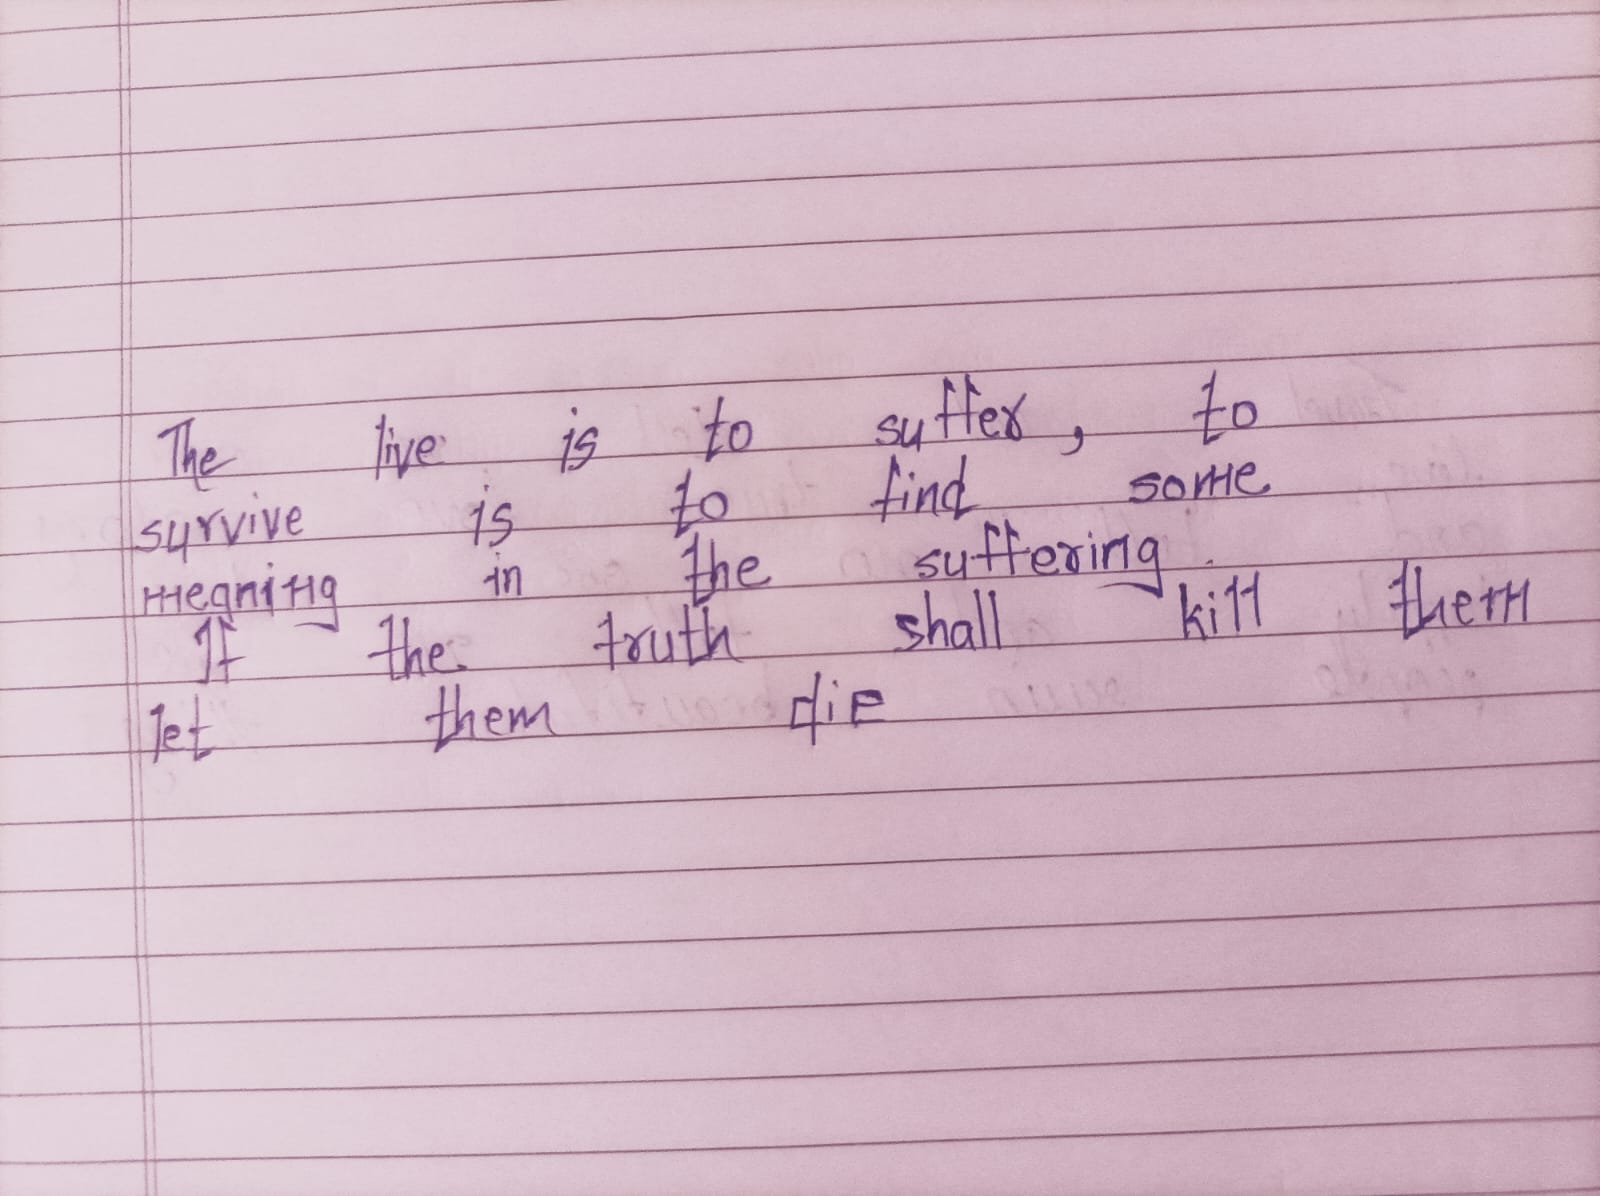 The live is to suffer, to
survive is to find some
meaning in the suffering.
If the truth shall kill them
let them die